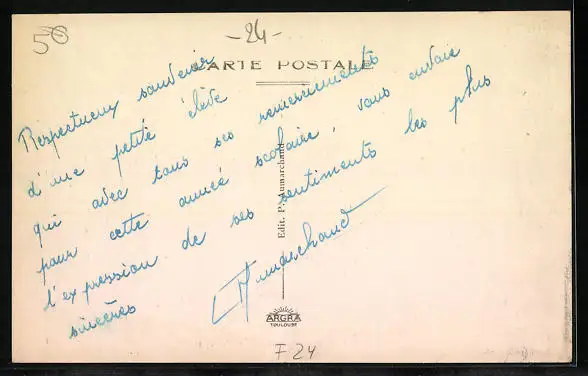 50
-24-
CARTE POSTALE
Respectueux souvenir
d'une petite élève
qui avec tous ses remerciements
pour cette année scolaire, vous envoie
l'expression de ses sentiments les plus
sincères
Aumarchand
Edit. P. Aumarchand
ARGRA
TOULOUSE
F 24